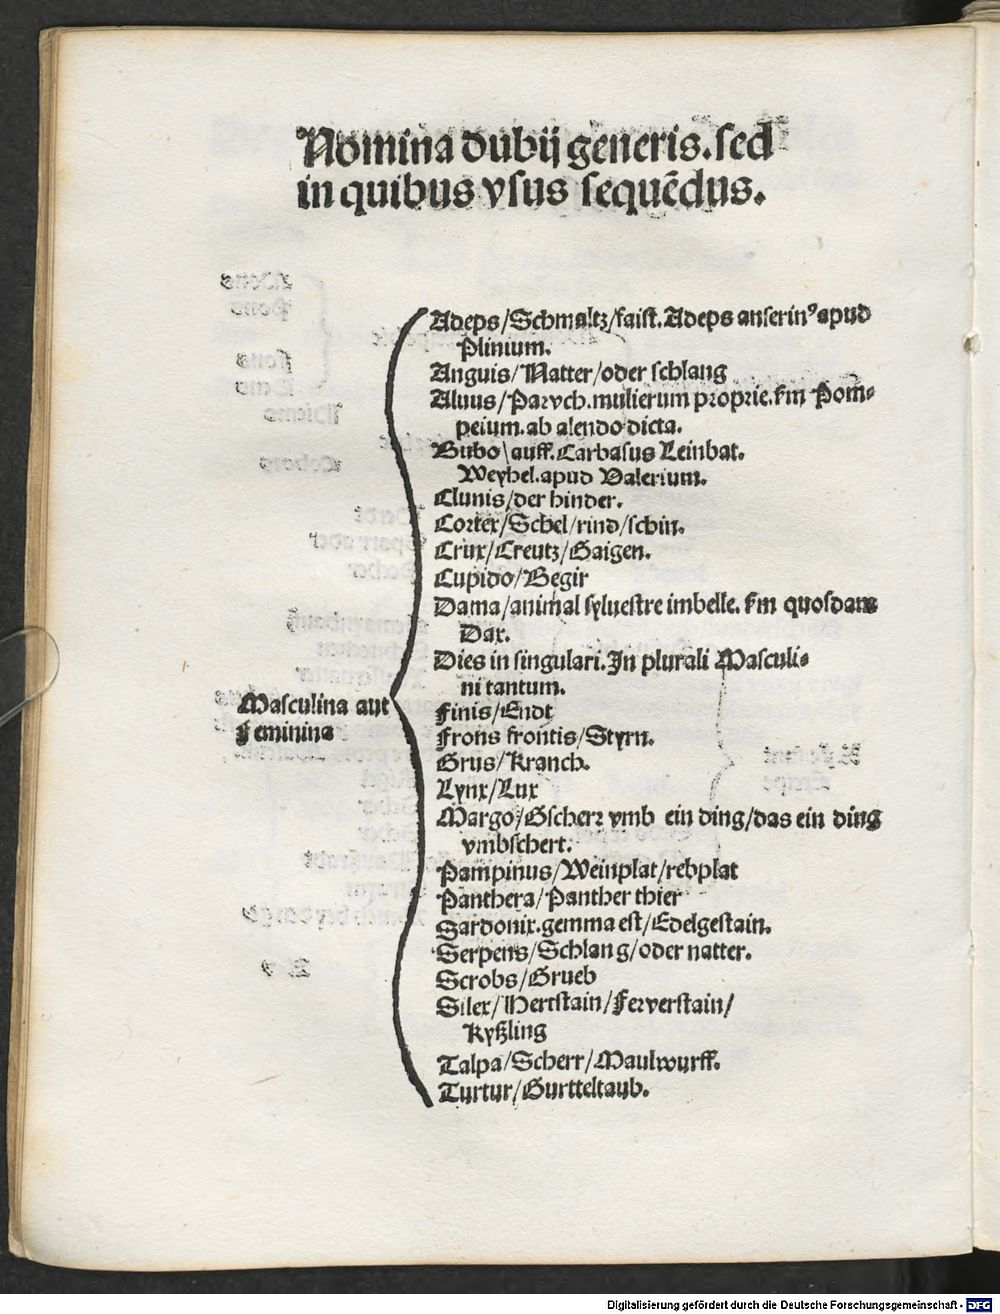 Nomina dubij generis. sed
in quibus vsus sequēdus.
Adeps/Schmaltz/faist. Adeps anserinꝰ apud
Plinium.
Anguis/Natter/oder schlang
Aluus/Parvch. mulierum proprie. fm Pom-
peium. ab alendo dicta.
Bubo\auff. Carbasus Leinbat.
Weyhel. apud Valerium.
Clunis/der hinder.
Cortex/Schel/rind/schin.
Crux/Creutz/Gaigen.
Cupido/Begir
Dama/animal syluestre imbelle. fm quosdam
Dax.
Dies in singulari. In plurali Masculi-
ni tantum.
Masculina aut
Feminina
Finis/Endt
Frons frontis/Styrn.
Grus/Kranch.
Lynx/Lux
Margo/Gscherr vmb ein ding/das ein ding
vmbschert.
Pampinus/Weinplat/rebplat
Panthera/Panther thier
Sardonix. gemma est/Edelgestain.
Serpens/Schlang/oder natter.
Scrobs/Grueb
Silex/Hertstain/Ferverstain/
Kyßling
Talpa/Scherr/Maulwurff.
Turtur/Gurtteltaub.
Digitalisierung gefördert durch die Deutsche Forschungsgemeinschaft - DFG